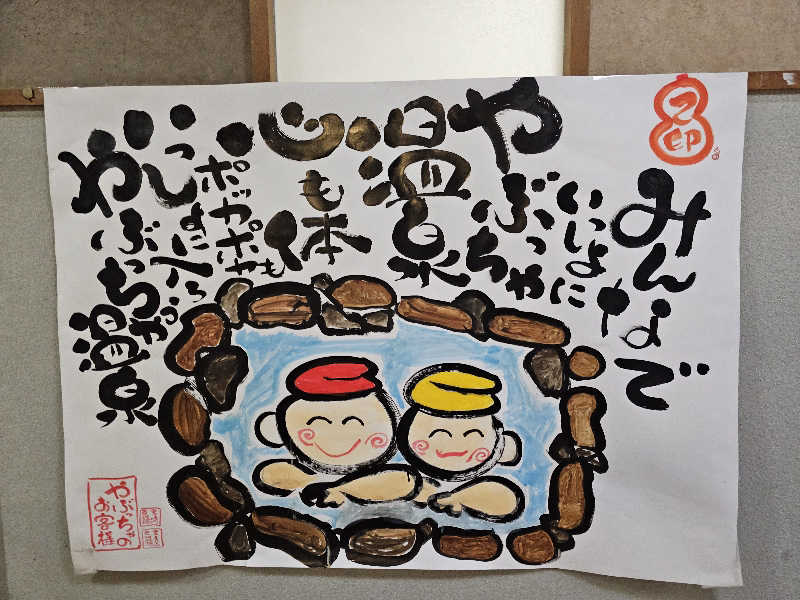 みんなで
いっしょに
やぶっちゃ
温泉
心も体も
ポッカポカ
いっしょに入ろっ
やぶっちゃ温泉
やぶっちゃの
お客様